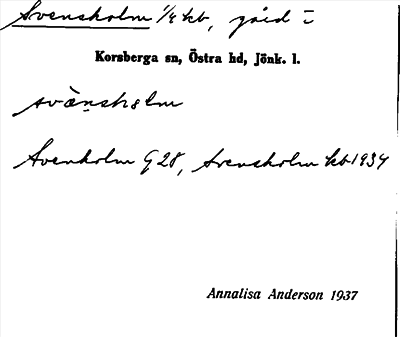 Svensholm 1/4 kb, gård
Korsberga sn, Östra hd, Jönk. l.
svänshɛlm
Svenholm G 28, Svensholm kb 1934
Annalisa Anderson 1937